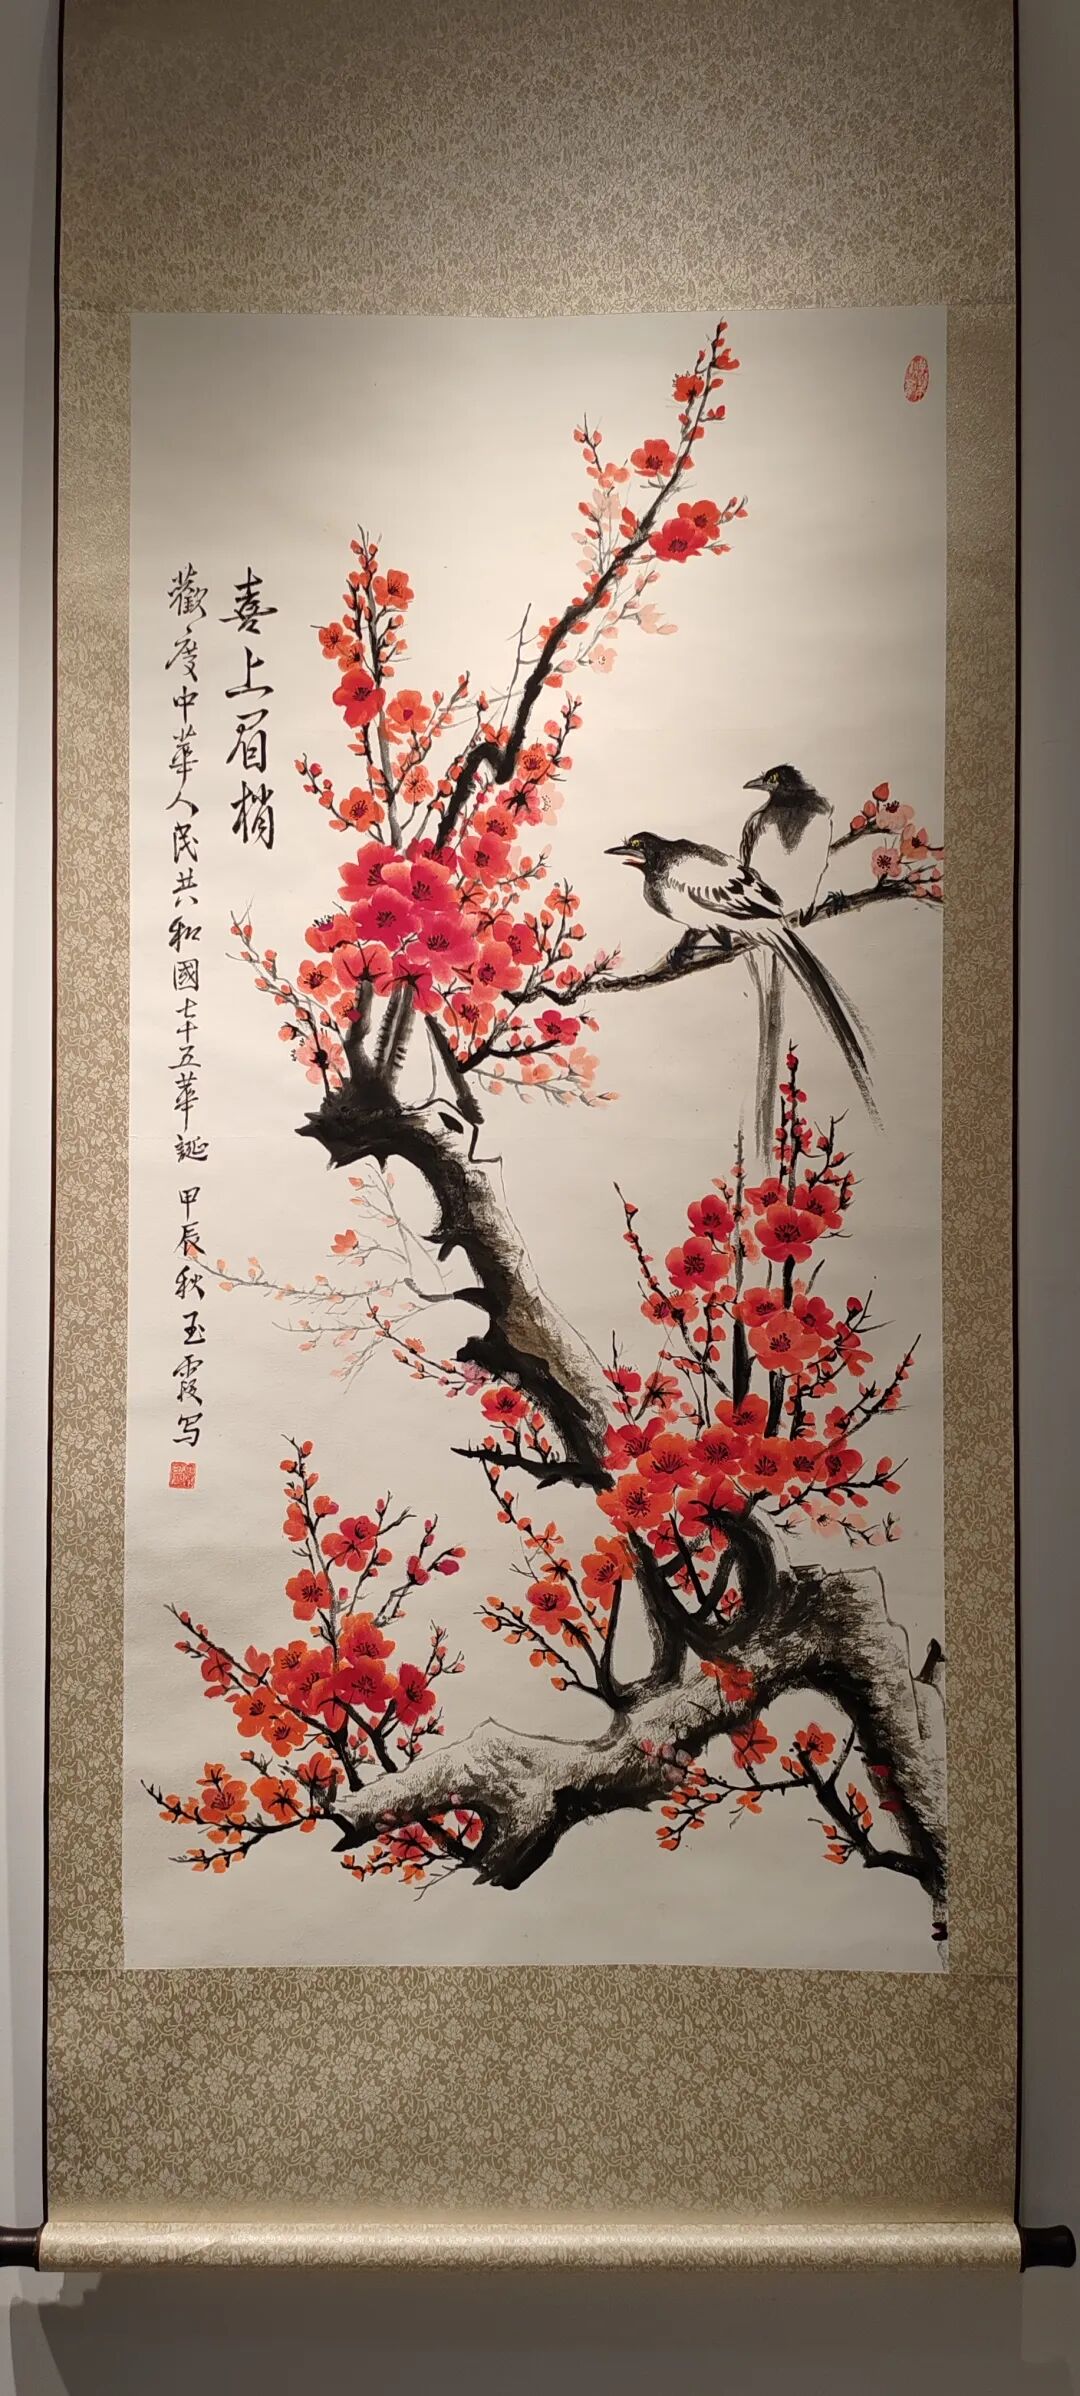 喜上眉梢
歡度中華人民共和國七十五華誕 甲辰秋玉霞写